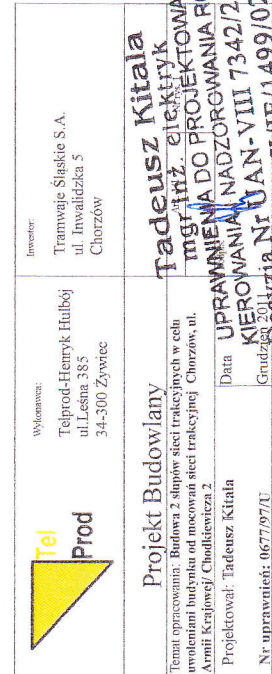 Tel
Prod
Wykonawca:
Telprod-Henryk Hulbój
ul.Leśna 385
34-300 Żywiec
Inwestor:
Tramwaje Śląskie S.A.
ul. Inwalidzka 5
Chorzów
Projekt Budowlany
Temat opracowania: Budowa 2 słupów sieci trakcyjnych w celu
uwolnieni budynku od mocowań sieci trakcyjnej Chorzów, ul.
Armii Krajowej/ Chodkiewicza 2
Projektował: Tadeusz Kitala
Data
Grudzień 2011
Nr uprawnień: 0677/97/U
Tadeusz Kitala
mgr inż. elektryk
UPRAWNIENIA DO PROJEKTOWA
KIEROWANIA, NADZOROWANIA RO
Nr UAN-VIII 7342/2
/1499/02